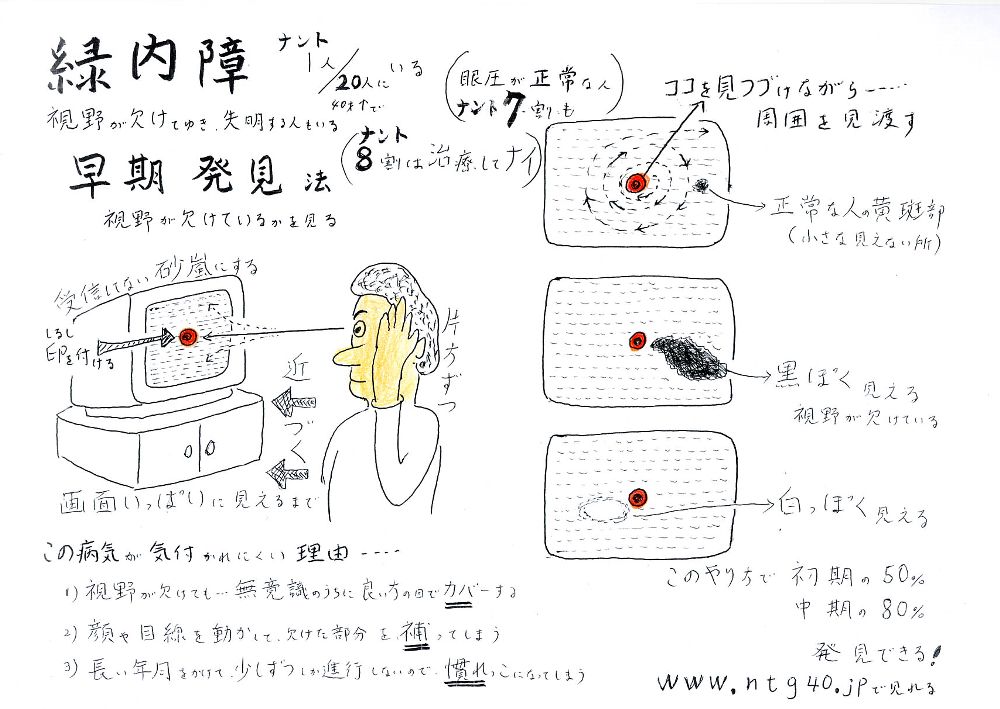 緑内障
ナント
1人/20人に いる
40才までで
(眼圧が正常な人
ナント7割も)
視野が欠けてゆき、失明する人もいる
(ナント
8割は治療してナイ)
早期発見法
視野が欠けているかを見る
ココを見つづけながら……
周囲を見渡す
正常な人の黄斑部
(小さな見えない所)
受信してない砂嵐にする
しるし
印を付ける
片方ずつ
近づく
画面いっぱいに見えるまで
黒っぽく見える
視野が欠けている
白っぽく見える
この病気が気付かれにくい理由----
1) 視野が欠けても…無意識のうちに良い方の目でカバーする
2) 顔や目線を動かして、欠けた部分を補ってしまう
3) 長い年月をかけて、少しずつしか進行しないので、慣れっこになってしまう
このやり方で初期の50%
中期の80%
発見できる!
www.ntg40.jpで見れる